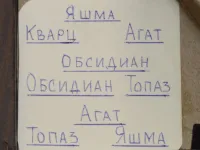 Яшма
Кварц Агат
Обсидиан
Обсидиан Топаз
Агат
Топаз Яшма